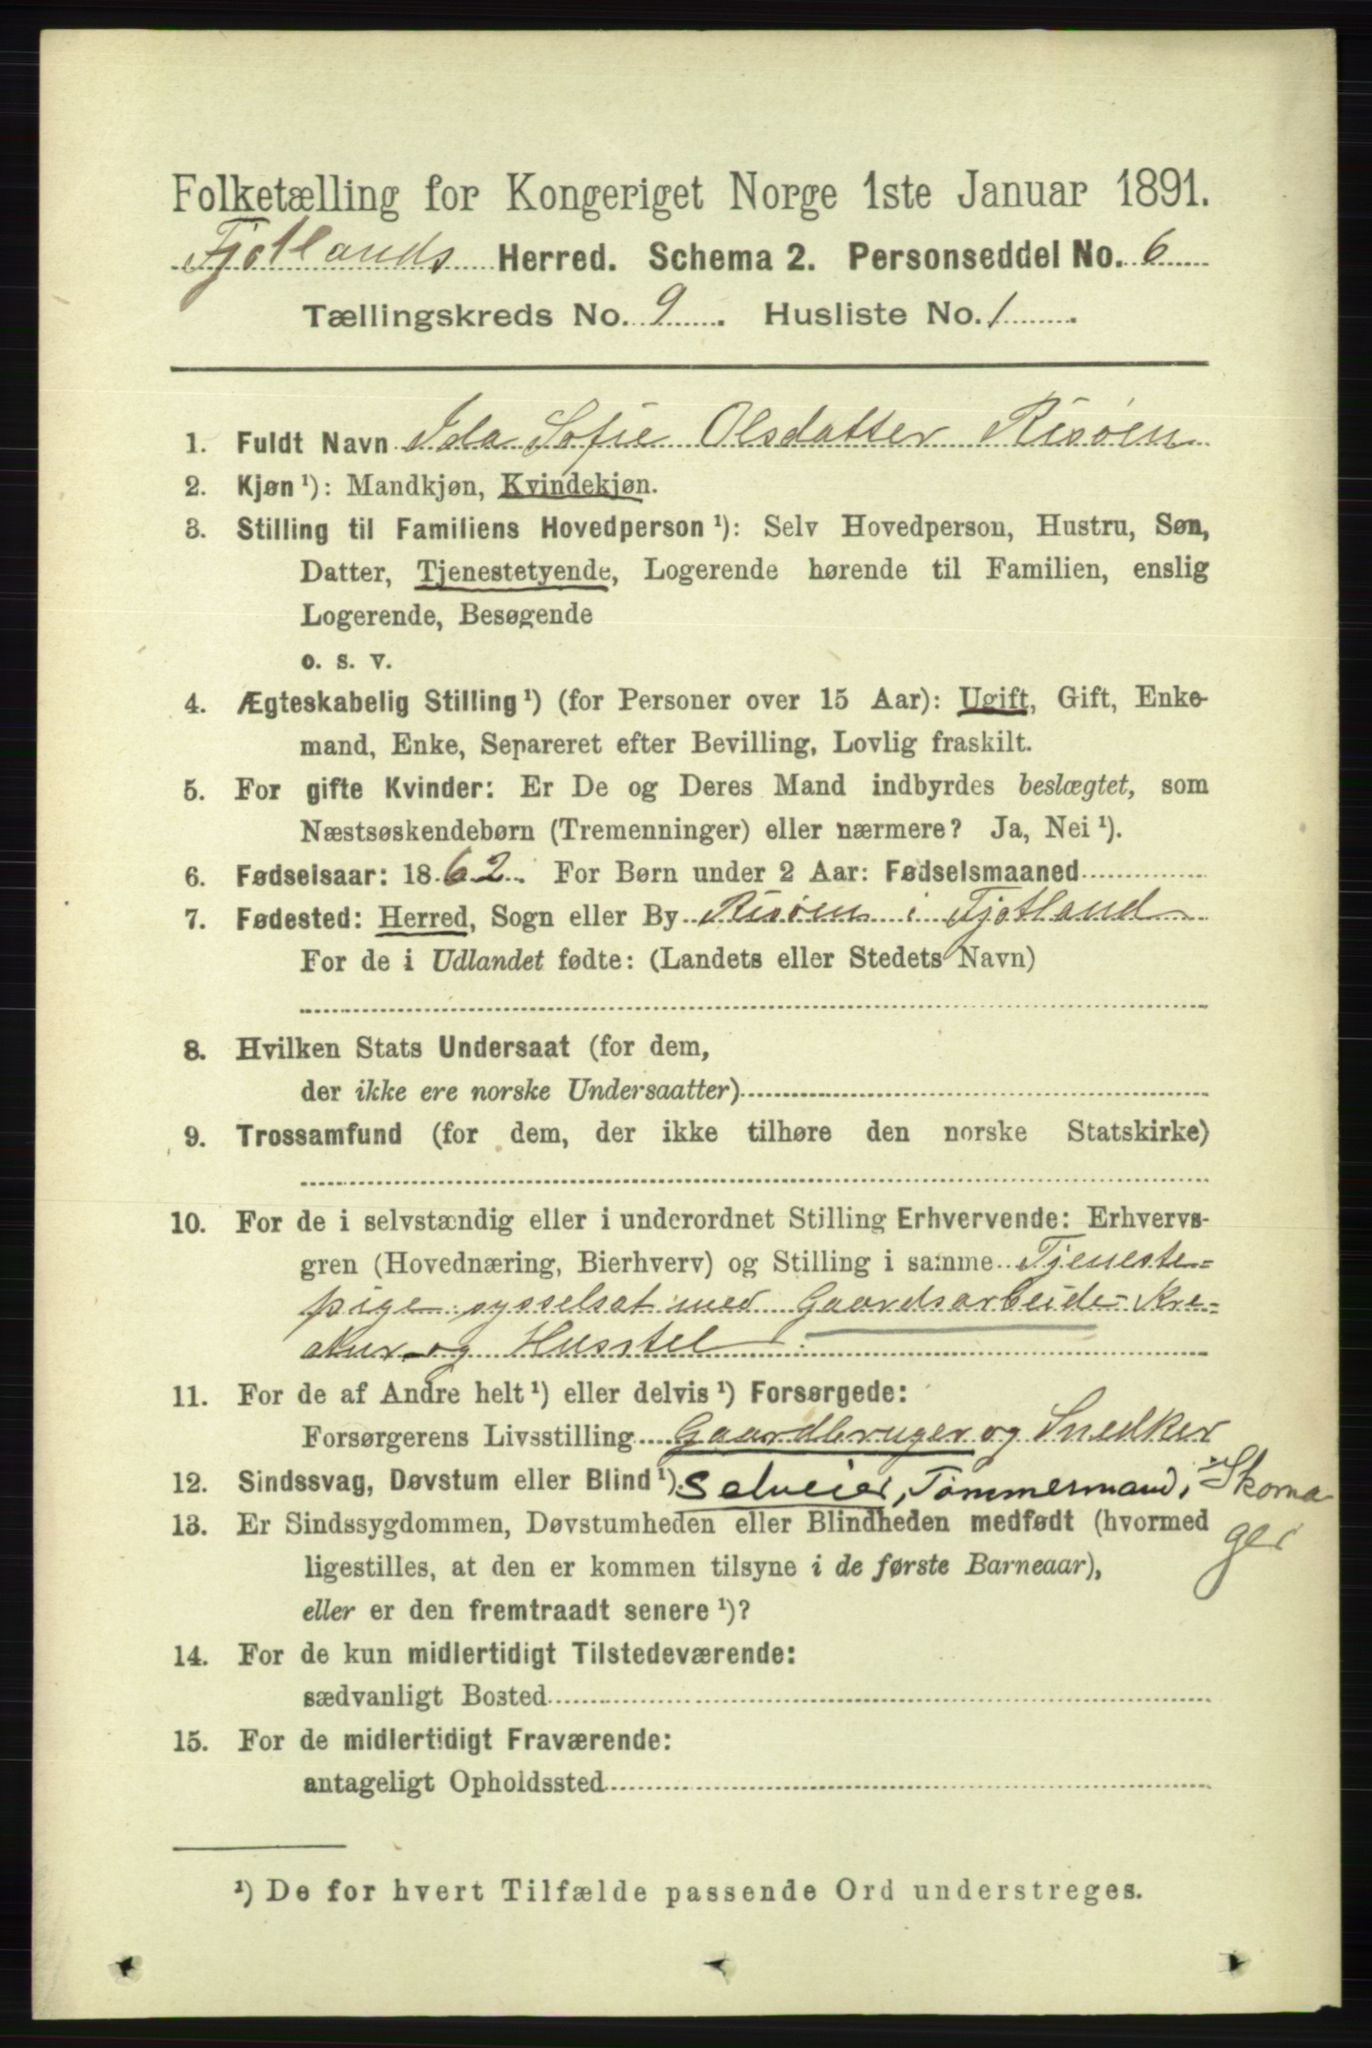 Folketælling for Kongeriget Norge 1ste Januar 1891.
Fjotlands Herred. Schema 2. Personseddel No. 6
Tællingskreds No. 9. Husliste No. 1.
1. Fuldt Navn Ida Sofie Olsdatter Risöen
2. Kjøn ¹): Mandkjøn, Kvindekjøn.
3. Stilling til Familiens Hovedperson ¹): Selv Hovedperson, Hustru, Søn,
Datter, Tjenestetyende, Logerende hørende til Familien, enslig
Logerende, Besøgende
o. s. v.
4. Ægteskabelig Stilling ¹) (for Personer over 15 Aar): Ugift, Gift, Enke-
mand, Enke, Separeret efter Bevilling, Lovlig fraskilt.
5. For gifte Kvinder: Er De og Deres Mand indbyrdes beslægtet, som
Næstsøskendebørn (Tremenninger) eller nærmere? Ja, Nei ¹).
6. Fødselsaar: 1862. For Børn under 2 Aar: Fødselsmaaned
7. Fødested: Herred, Sogn eller By Risöen i Fjotland
For de i Udlandet fødte: (Landets eller Stedets Navn)
8. Hvilken Stats Undersaat (for dem,
der ikke ere norske Undersaatter)
9. Trossamfund (for dem, der ikke tilhøre den norske Statskirke)
10. For de i selvstændig eller i underordnet Stilling Erhvervende: Erhvervs-
gren (Hovednæring, Bierhverv) og Stilling i samme Tjeneste-
pige sysselsat med Gaardsarbeide Kre-
atur og Husstel
11. For de af Andre helt ¹) eller delvis ¹) Forsørgede:
Forsørgerens Livsstilling Gaardbruger og Snedker
12. Sindssvag, Døvstum eller Blind ¹). Selveier, Tømmermand, Skoma
13. Er Sindssygdommen, Døvstumheden eller Blindheden medfødt (hvormed ger
ligestilles, at den er kommen tilsyne i de første Barneaar),
eller er den fremtraadt senere ¹)?
14. For de kun midlertidigt Tilstedeværende:
sædvanligt Bosted
15. For de midlertidigt Fraværende:
antageligt Opholdssted
¹) De for hvert Tilfælde passende Ord understreges.